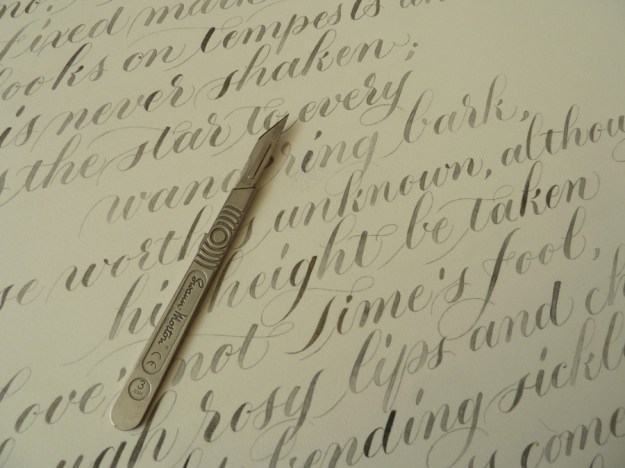 no.
fixed mark
looks on tempests an
is never shaken;
the star to every
wandering bark,
se worth's unknown, althou
his height be taken
Love's not Time's fool,
ugh rosy lips and ch
bending sickle
come
Swann-Morton
CE
3